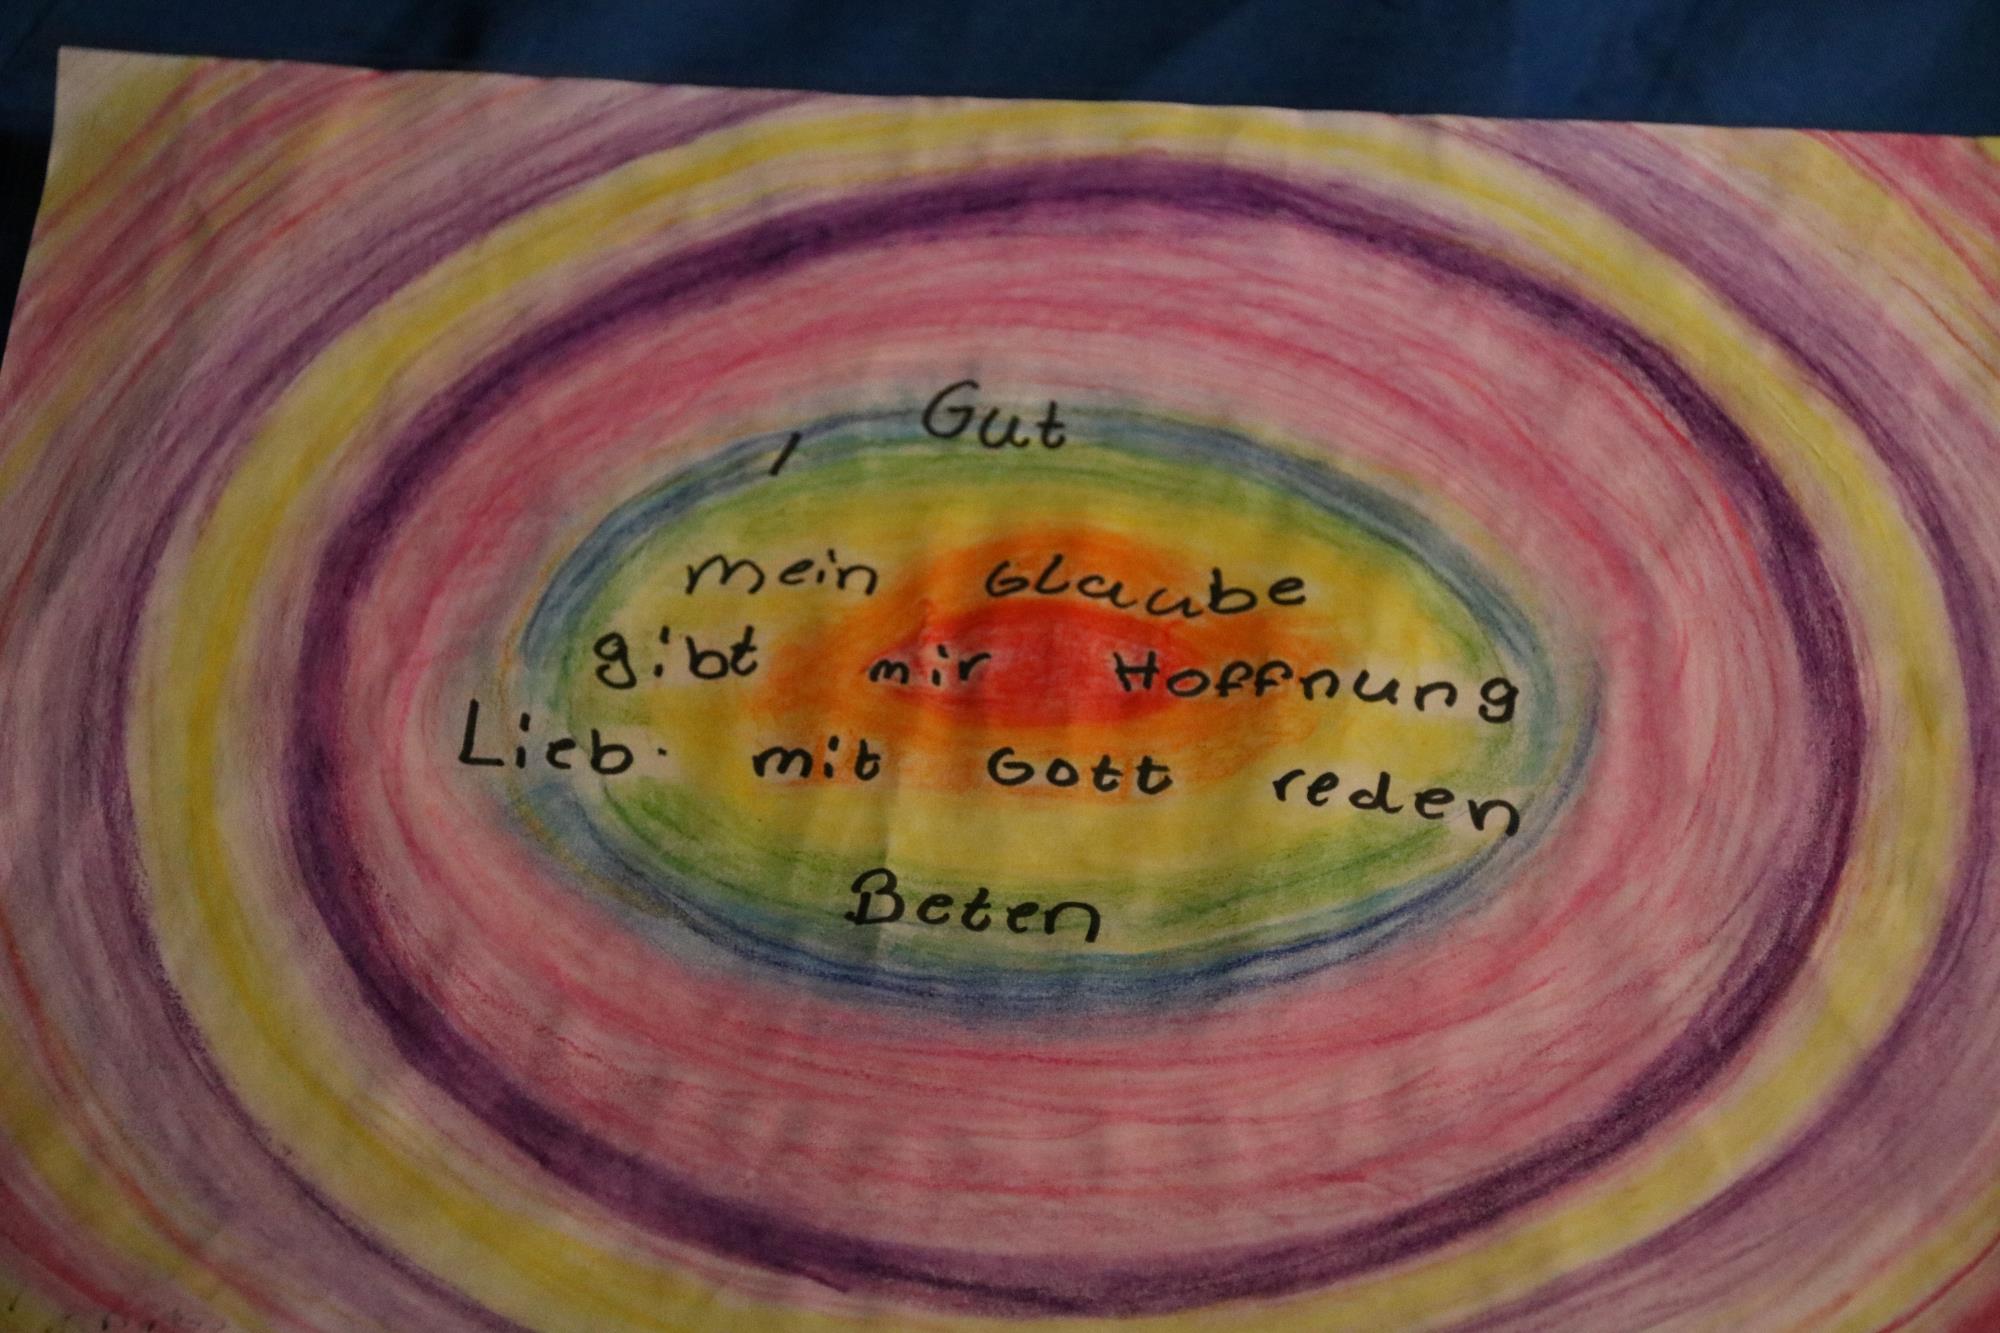 , Gut
mein Glaube
gibt mir Hoffnung
Lieb. mit Gott reden
Beten